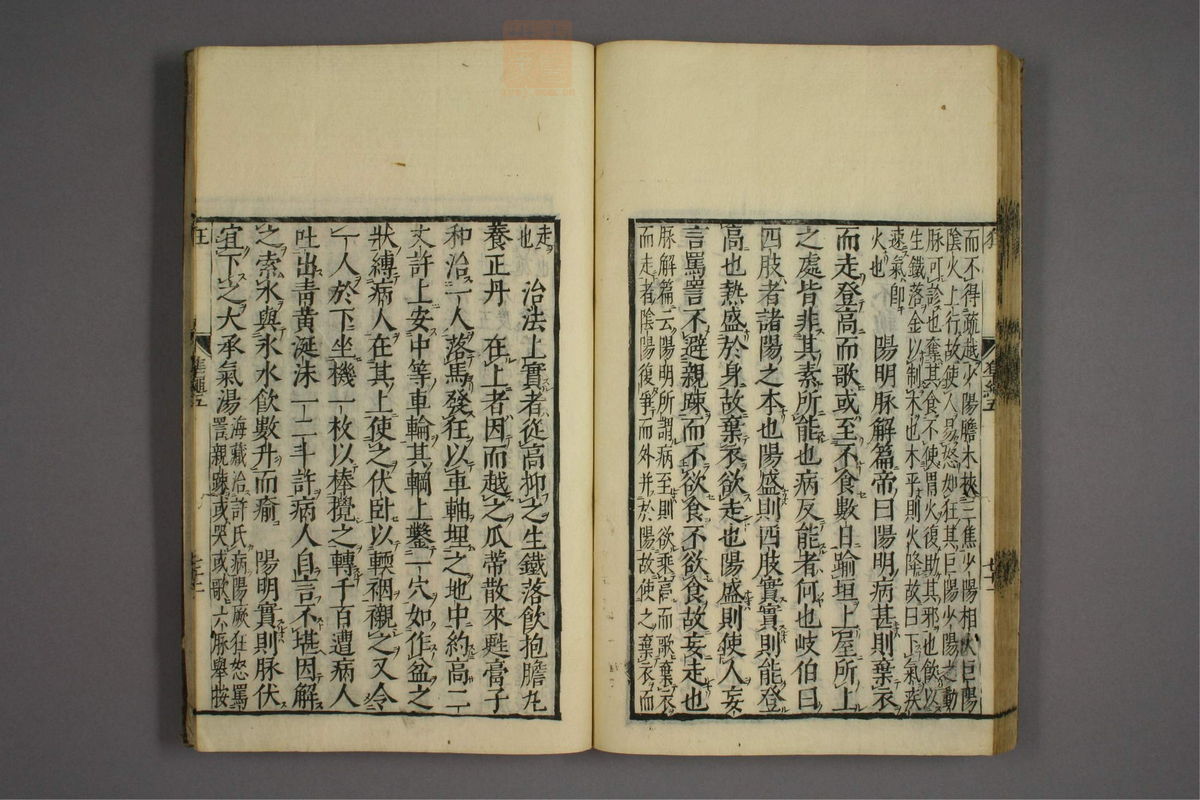 而不得疏越少陽膽木挾三焦少陽相火巨陽
陰火上行故使人易怒如狂其巨陽少陽之動
脉可診也奪其食不使胃火復助其邪也飲以
生鐵落金以制木也木平則火降故曰下氣疾
速氣即
火也
陽明脉解篇帝曰陽明病甚則棄衣
而走登高而歌或至不食數日踰垣上屋所上
之處皆非其素所能也病反能者何也岐伯曰
四肢者諸陽之本也陽盛則四肢實實則能登
高也熱盛於身故棄衣欲走也陽盛則使人妄
言罵詈不避親踈而不欲食不欲食故妄走也
脉解篇云陽明所謂病至則欲乘高而歌棄衣
而走者陰陽復爭而外并於陽故使之棄衣而
走
也
治法上實者從高抑之生鐵落飲抱膽丸
養正丹 在上者因而越之瓜蒂散來甦膏子
和治一人落馬發狂以車軸埋之地中約高二
丈許上安中等車輪其輞上鑿一穴如作盆之
狀縛病人在其上使之伏臥以軟裀襯之又令
一人於下坐機一枚以棒攪之轉千百遭病人
吐出青黃涎沫一二斗許病人自言不堪因解
之索水與氷水飲數升而瘉 陽明實則脉伏
宜下之大承氣湯
海藏治許氏病陽厥狂怒罵
詈親踈或哭或歌六脉舉按